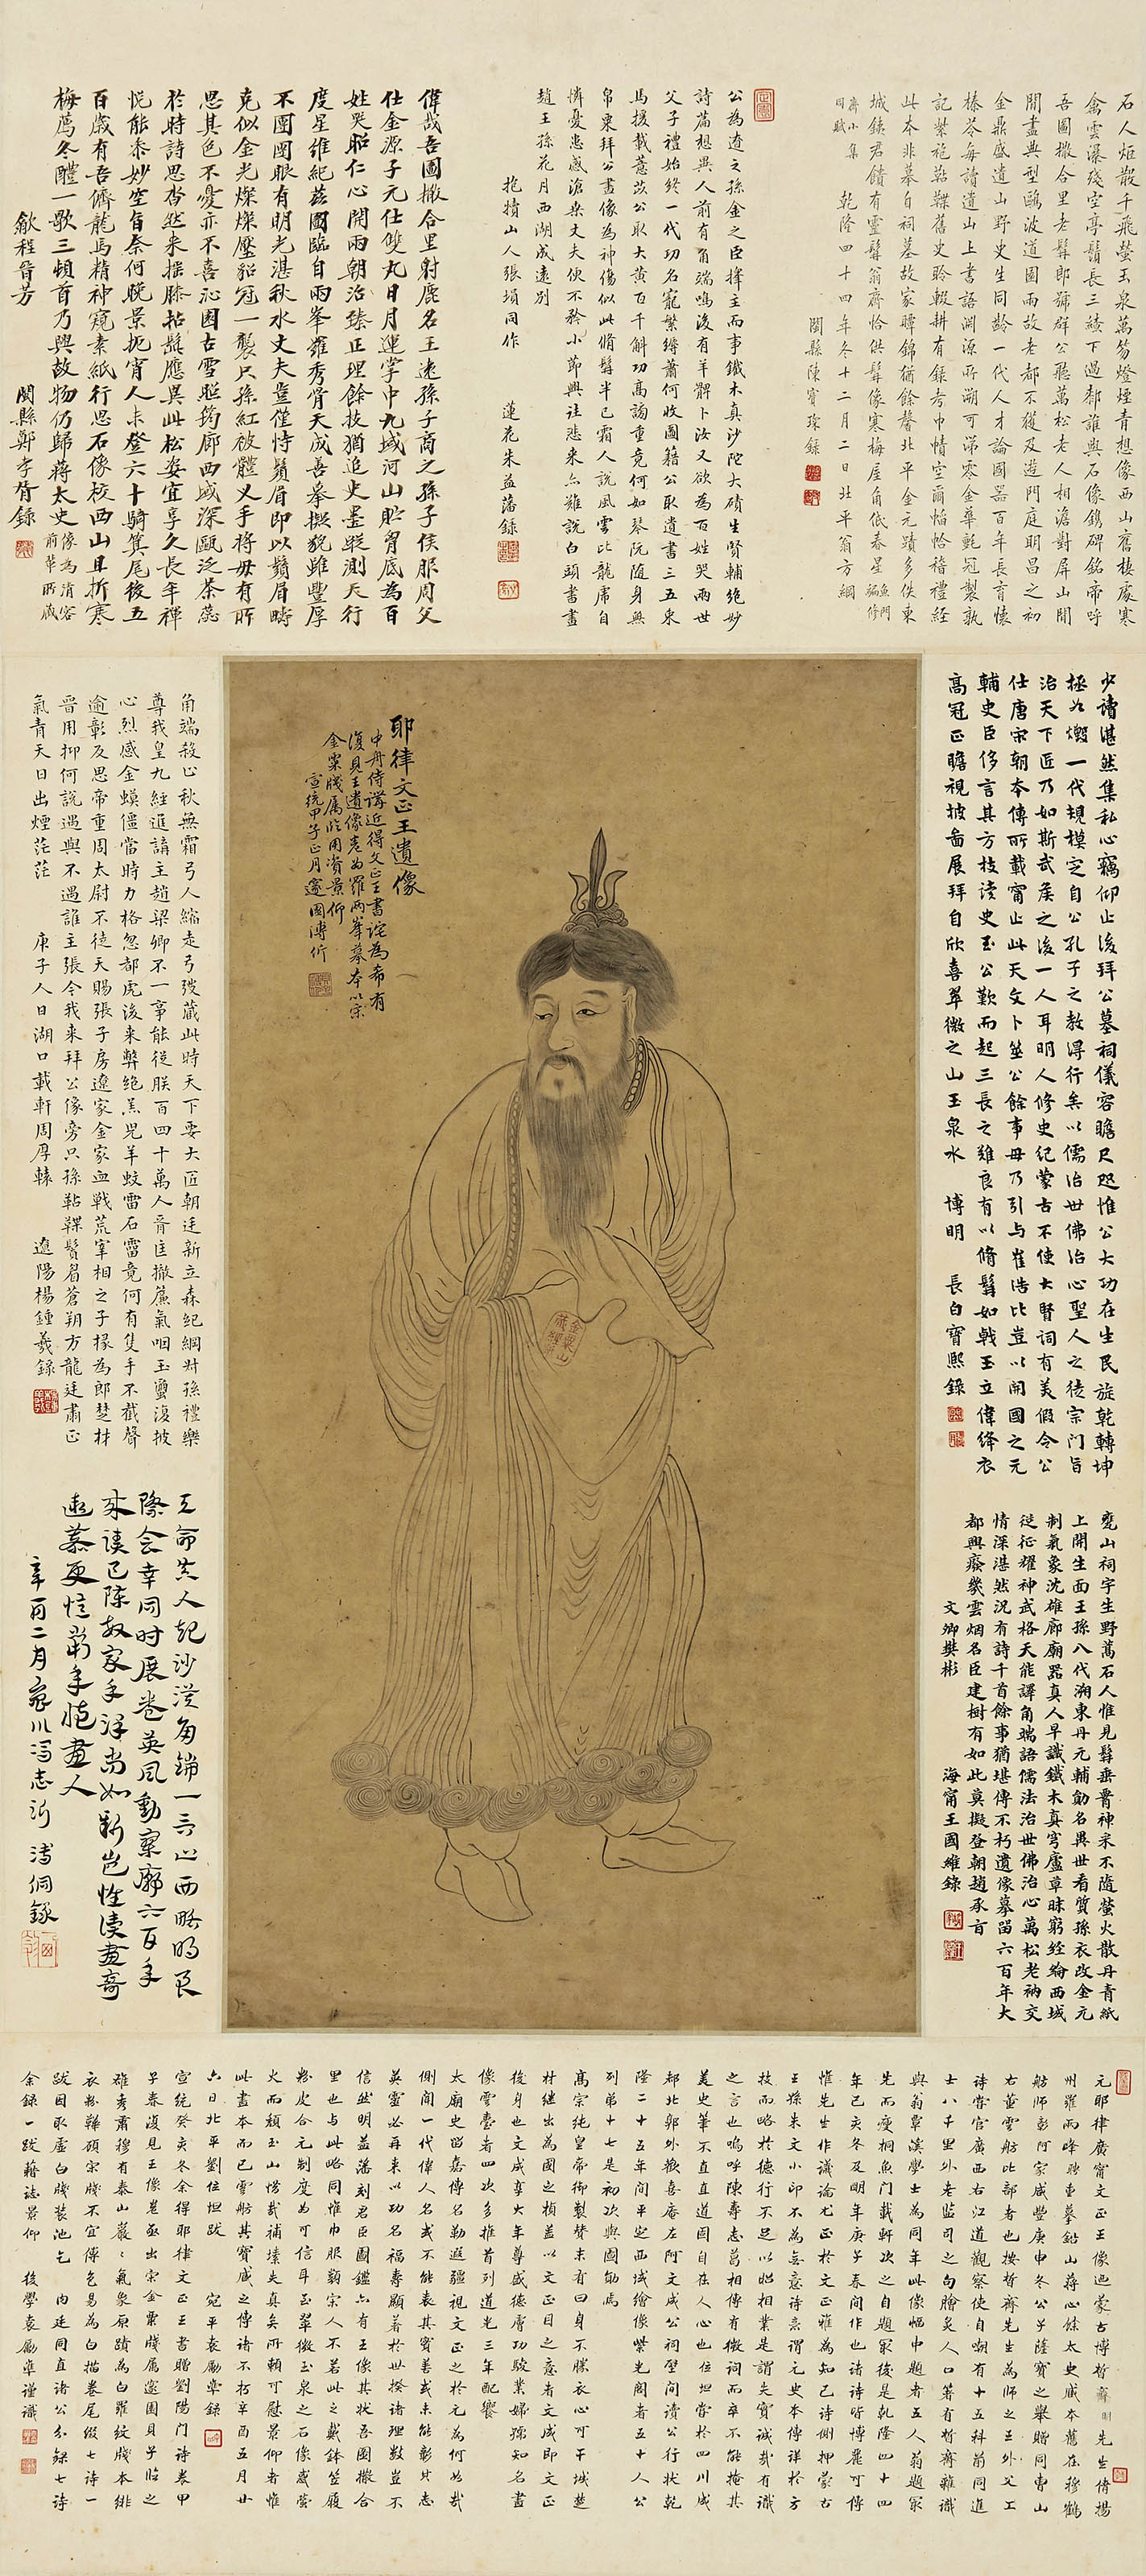 石人炬散千飛螢玉泉萬笏燈煙青想像西山舊棲處寒
禽雲瀑殘空亭鬚長三綹下過誰與石像鐫碑銘帝呼
吾圖撒合里老髯郎號群公聽萬松老人相澹對屏山開
開畫與型鷗波道園兩故老都不獲及遊門庭明昌之初
金鼎盛遺山野史生同齡一代人才論國器百年長育懷
榛苓每讀遺山上書語淵源所溯可涕零金華氈冠製孰
記紫袍舊史聆輟耕有錄考巾幘空爾恰稽禮經
此本非摹自祠墓故家曝錦猶餘馨北平金元蹟多佚東
城錢君饋有靈髯翁齋恰供髯像寒梅屋角低春星
乾隆四十四年冬十二月二日北平翁方綱
閩縣陳寶琛錄
公為遼之孫金之臣擇主而事鐵木真沙陀大磧生賢輔絕妙
詩篇想與人前有角端鳴後有羊髀卜汝又欲為百姓哭兩世
父子禮始終一代功名寵繁縟蕭何收圖籍公取遺書三五束
馬援載薏苡公取大黃百千斛功高謗重竟何如琴阮隨身無
帛粟拜公畫像為神傷似此脩髯半已霜人說風雲比龍虎自
憐憂患感滄桑丈夫便不矜小節與往悲來亦難說白頭書畫
趙王孫花月西湖成遠別
抱犢山人張塤同作
蓮花朱益藩錄
偉哉吾圖撒合里射鹿名王遠孫子商之孫子侯服周父
仕金源子元仕雙丸日月運掌中九域河山貯胷底為百
姓哭昭仁心開兩朝治臻正理餘技猶追史墨蹤測天行
度星維紀茲圖臨自兩峯羅秀骨天成善摹擬貌雖豐厚
不團團眼有明光湛秋水丈夫豈僅恃鬚眉即以鬚眉疇
克似金光燦燦壓貂冠一襲尺孫紅被體义手將毋有所
思其色不憂亦不喜沁園古雪照筠廊西域深甌泛茶蕊
於時詩思沓然來搖膝拈髭應與此松姿宜享久長年禪
悅能參妙空旨奈何晚景扼宵人未登六十騎箕尾後五
百歲有吾儕龍馬精神窺素紙行思石像校西山且折寒
梅薦冬醴一歌三頓首乃與故物仍歸蔣太史
像為清容前輩所藏
歙程晉芳
閩縣鄭孝胥錄
少讀湛然集私心竊仰止後拜公墓祠儀容瞻尺咫惟公大功在生民旋乾轉坤
拯水燬一代規模定自公孔子之教得行矣以儒治世佛治心聖人之徒宗門旨
治天下匠乃如斯武矦之後一人耳明人修史紀蒙古不使大賢詞有美假令公
仕唐宋朝本傳所載甯止此天文卜筮公餘事毋乃引与崔浩比豈以開國之元
輔史臣侈言其方技讀史至公歎而起三長之難良有以脩髯如戟玉立偉絳衣
高冠正瞻視披圖展拜自欣喜翠微之山玉泉水
博明
長白寶熙錄
甕山祠宇生野蒿石人惟見髯垂胷神采不隨螢火散丹青紙
上開生面王孫八代溯東丹元輔勛名異世看質孫衣改金元
制氣象沈雄廊廟器真人早識鐵木真穹廬草昧窮經綸西域
從征耀神武格天能譯角端語儒法治世佛治心萬松老衲交
情深湛然況有詩千首餘事猶堪傳不朽遺像摹留六百年大
都興廢幾雲烟名臣建樹有如此莫擬登朝趙承旨
文卿樊彬
海甯王國維錄
耶律文正王遺像
中舟侍講近得文正王書詫為希有
復見王遺像卷為羅兩峯摹本以宗
金粟牋屬臨用資景仰
宣統甲子正月邃園溥伒
金粟山藏經紙
角端殺止秋無霜弓人縮走弓弢藏此時天下要大匠朝廷新立森紀綱叔孫禮樂
尊我皇九經進講主趙梁卿不一事能從朕百四十萬人胥匡撤簾氣咽玉璽復披
心烈感金蟆僵當時力格忽都虎後來弊絕羔兕羊蚊雷石霤竟何有隻手不截聲
逾彰及思帝重周太尉不徒天賜張子房遼家金家血戰荒宰相之子掾為郎楚材
晉用抑何說遇與不遇誰主張令我來拜公像旁只孫鞊鞢鬢眉蒼朔方龍廷肅正
氣青天日出煙茫茫
庚子人日湖口載軒周厚轅
遼陽楊鍾羲錄
王命真人起沙漠角端一言止西略明良
際会幸同时展卷英風動寥廓六百年
来读已陳故家手澤尚如新豈惟讀畫奇
遠慕更憶當年燒畫人
辛酉二月寂川馮志沂
溥侗錄
元耶律廣甯文正王像迺蒙古博晢齋明先生倩揚
州羅兩峰聘重摹鉛山蔣心餘太史臧本舊在穆鶴
舫師彰阿家咸豐庚申冬公子薩寶之舉贈同曹山
右董雲舫比部者也按晢齋先生為師之王外父工
詩嘗官廣西右江道觀察使自嘲有十五科前同進
士八千里外老監司之句膾炙人口著有晢齋雜識
與翁覃溪學士為同年此像幅中題者五人翁題冣
先而瘦桐魚門載軒次之自題冣後是乾隆四十四
年己亥冬及明年庚子春間作也諸詩皆博麗可傳
惟先生作議論尤正於文正雅為知己詩側押蒙古
王孫朱文小印不為無意詩意謂元史本傳詳於方
技而略於德行不足以姶相業是謂失實誠哉有識
之言也嗚呼陳壽志葛相傳有微詞而卒不能掩其
美史筆不直直道固自在人心也位坦嘗於四川成
都北郭外歡喜庵左阿文成公祠壁間讀公行狀乾
隆二十五年間平定西域繪像紫光閣者五十人公
列弟十七是初次與圖勛焉
高宗純皇帝御製贊未有曰身不勝衣心可干城楚
材繼出為國之楨蓋以文正目之意者文成即文正
後身也文成享大年尊盛德膚功駿業婦孺知名畫
像雲臺者四次多推首列道光三年配饗
太廟史留嘉傳名勒遐疆視文正之於元為何如哉
側聞一代偉人名或不能表其實善或未能彰其志
英靈必再来以功名福壽顯著於世揆諸理數豈不
信然明益藩刻君臣圖鑑亦有王像其狀吾圖撒合
里也与此略同惟巾服類宋人不若此之戴鉢笠履
粉皮合元制度為可信耳至翠微玉泉之石像感螢
火而頹玉山愣哉補壊失真矣所賴可慰景仰者惟
此畫本而已雲舫其寶臧之傳諸不朽辛酉五月廿
六日北平劉位坦跋
宛平袁勵準錄
宣統癸亥冬余得耶律文正王書贈劉陽門詩卷甲
子春復見王像卷亟出宗金粟牋屬邃園貝子臨之
雄秀肅穆有泰山巖巖氣象原蹟為白羅紋牋本緋
衣粉韡頗宗牋不宜傅色易為白描卷尾僅七詩一
跋因取虛白牋裝池乞
內廷同直諸公分錄七詩
余錄一跋藉誌景仰
後學袁勵準謹識